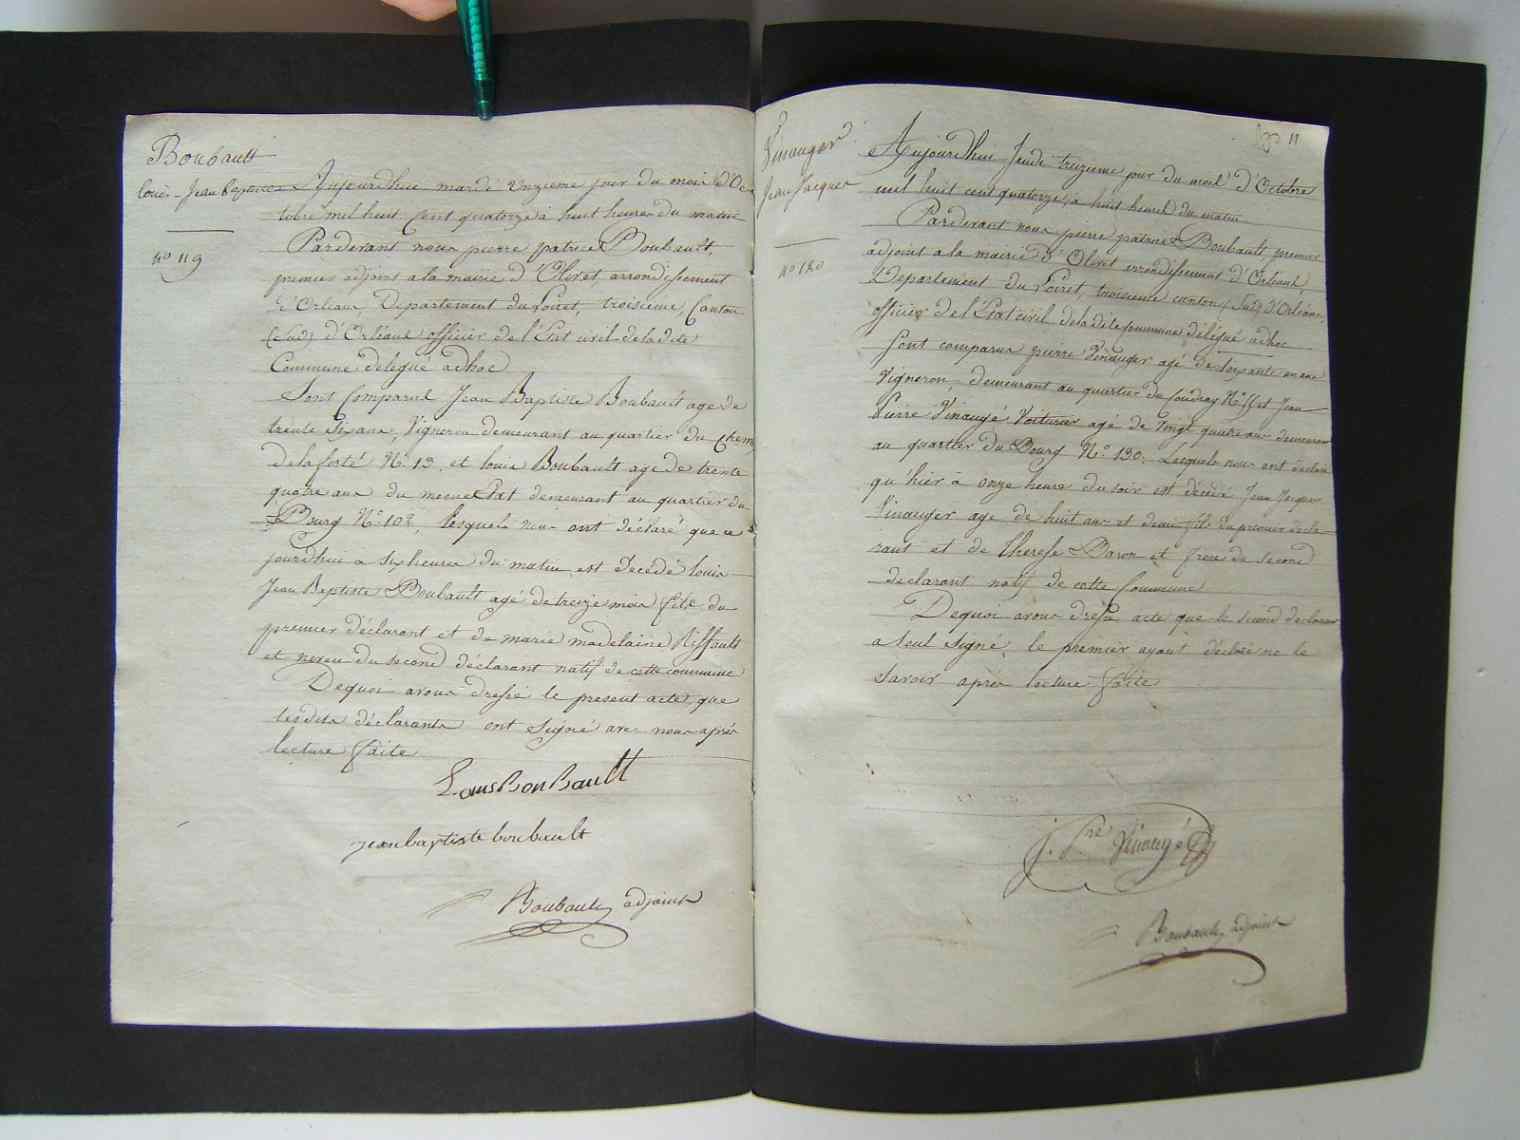 Boubault
Louis-Jean Baptiste
n° 119
Aujourdhui mardi unzieme jour du mois d'Oc
tobre mil huit cent quatorze à huit heures du matin
Pardevant nous pierre patrice Boubault,
premier adjoint a la mairie d'Olivet, arrondissement
d'Orleans, Departement du Loiret, troisieme, Canton
(Sud) d'Orléans officier de l'Etat civil de la dite
Commune délégué adhoc
Sont Comparus Jean Baptiste Boubault age de
trente six ans, Vigneron demeurant au quartier du chemin
de la ferté N° 13. et louis Boubault age de trente
quatre ans du meme Etat demeurant au quartier du
Bourg N° 102, lesquels nous ont déclaré que ce
jourdhui a six heures du matin est Decédé louis
Jean Baptiste Boubault agé de treize mois fils du
premier déclarant et de marie madelaine Riffault
et neveu du second déclarant natif de cette commune
Dequoi avons dressé le present acte que
lesdits déclarants ont signé avec nous après
lecture faite
Louis Bou Bault
jean baptiste boubault
Boubault adjoint
11
Vinauger
Jean Jacques
n° 120
Aujourdhui Jeudi treizieme jour du mois d'Octobre
mil huit cent quatorze, a huit heures du matin
Pardevant nous pierre patrice Boubault, premier
adjoint a la mairie d'Olivet arrondissement d'Orleans
Departement du Loiret, troisieme canton (Sud) d'Orléans,
officier de l'Etat civil de la dite commune délégué adhoc
Sont comparus pierre Vinauger agé de soixante un ans
Vigneron, demeurant au quartier du Coudray N° 11 et Jean
Pierre Vinaugé Voiturier agé de Vingt quatre ans demeurant
au quartier du Bourg N° 130. Lesquels nous ont déclaré
qu'hier à onze heures du soir est décédé Jean Jacques
Vinauger age de huit ans et demi fils du premier decla
rant et de Therese Baron et frere de second
declarant natif de cette Commune
Dequoi avons dressé acte que le second declarant
a seul signé, le premier ayant déclaré ne le
savoir après lecture faite
j. Pre Vinaugé
Boubault adjoint